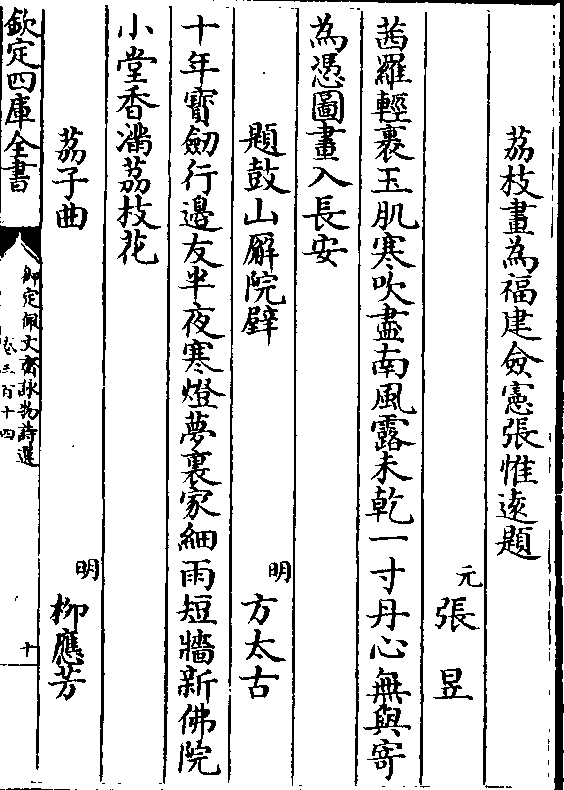 荔枝畫為福建僉憲張惟遠題
元張昱
茜羅輕裹玉肌寒吹盡南風露未乾一寸丹心無與寄
為憑圖畫入長安
題鼓山廨院壁
明方太古
十年寶劒行邊友半夜寒燈夢裏家細雨短牆新佛院
小堂香滿荔枝花
荔子曲
明柳應芳
欽定四庫全書
御定佩文齋詠物詩選
卷三百十四
十